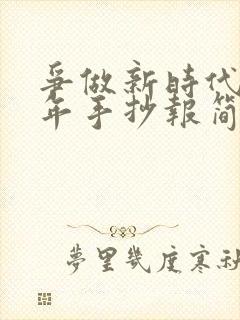 爭做新時代
年手抄報簡
夢里幾度寒秋